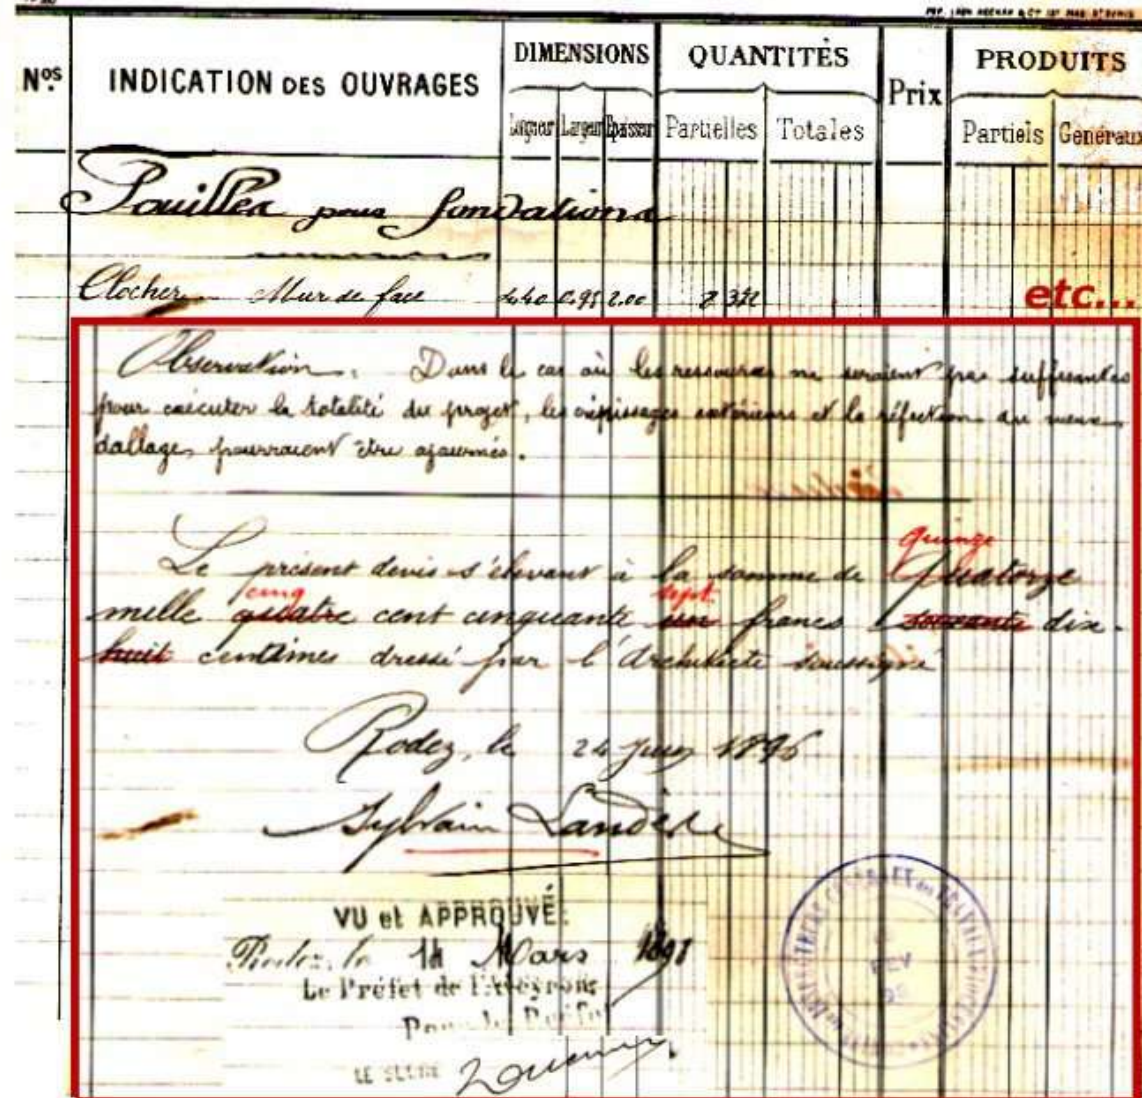 Nos. INDICATION DES OUVRAGES DIMENSIONS QUANTITÉS Prix PRODUITS
Longueur Largeur Epaisseur Partielles Totales Partiels Généraux
Fouilles pour fondations
Clocher Mur de face 4.40 0.95 2.00 etc...
Observation. Dans le cas où les ressources ne seraient pas suffisantes
pour exécuter la totalité du projet, les crépissages extérieurs et la réfection du vieux
dallage, pourraient être ajournés.
quinze
Le présent devis s'élevant à la somme de Quatorze
cinq sept
mille quatre cent cinquante un francs soixante dix-
huit centimes dressé par l'Architecte soussigné
Rodez, le 24 1896
Sylvain
VU et APPROUVÉ:
Rodez, le 14 Mars 1898
Le Préfet de l'Aveyron
Pour le Préfet
LE
FEV